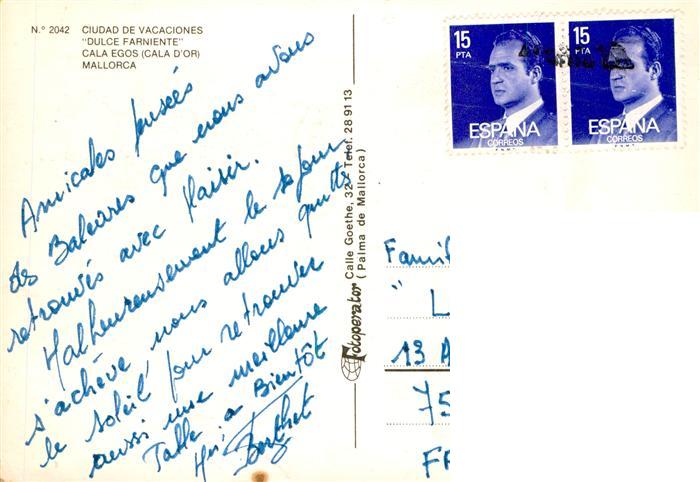 N.º 2042 CIUDAD DE VACACIONES
"DULCE FARNIENTE"
CALA EGOS (CALA D'OR)
MALLORCA
Amicales pensées
des Baleares que nous avons
retrouvés avec plaisir.
Malheureusement le séjour
s'achève nous allons quitter
le soleil pour retrouver
aussi une meilleure
Table a Bientôt
Berthet
Fotoperator Calle Goethe, 32 - Telef. 28 91 13
(Palma de Mallorca)
15 PTA
ESPAÑA
CORREOS
15 PTA
ESPAÑA
CORREOS
Famil
" L
13 A
75
FR